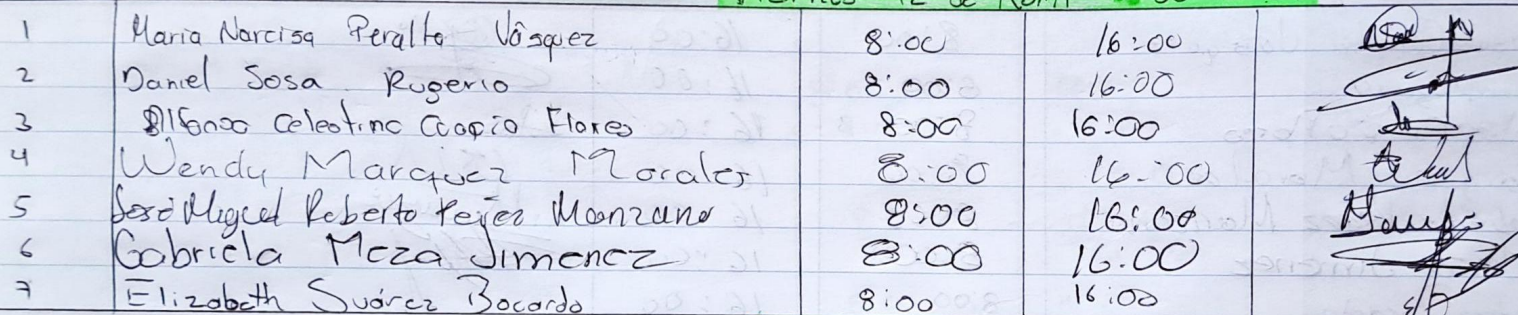 1 Maria Narcisa Peralta Vásquez 8:00 16:00
2 Daniel Sosa Rugerio 8:00 16:00
3 Celestino Flores 8:00 16:00
4 Wendy Marquez Morales 8:00 16:00
5 José Miguel Roberto Manzano 8:00 16:00
6 Gabriela Meza Jimenez 8:00 16:00
7 Elizabeth Suárez Bocardo 8:00 16:00